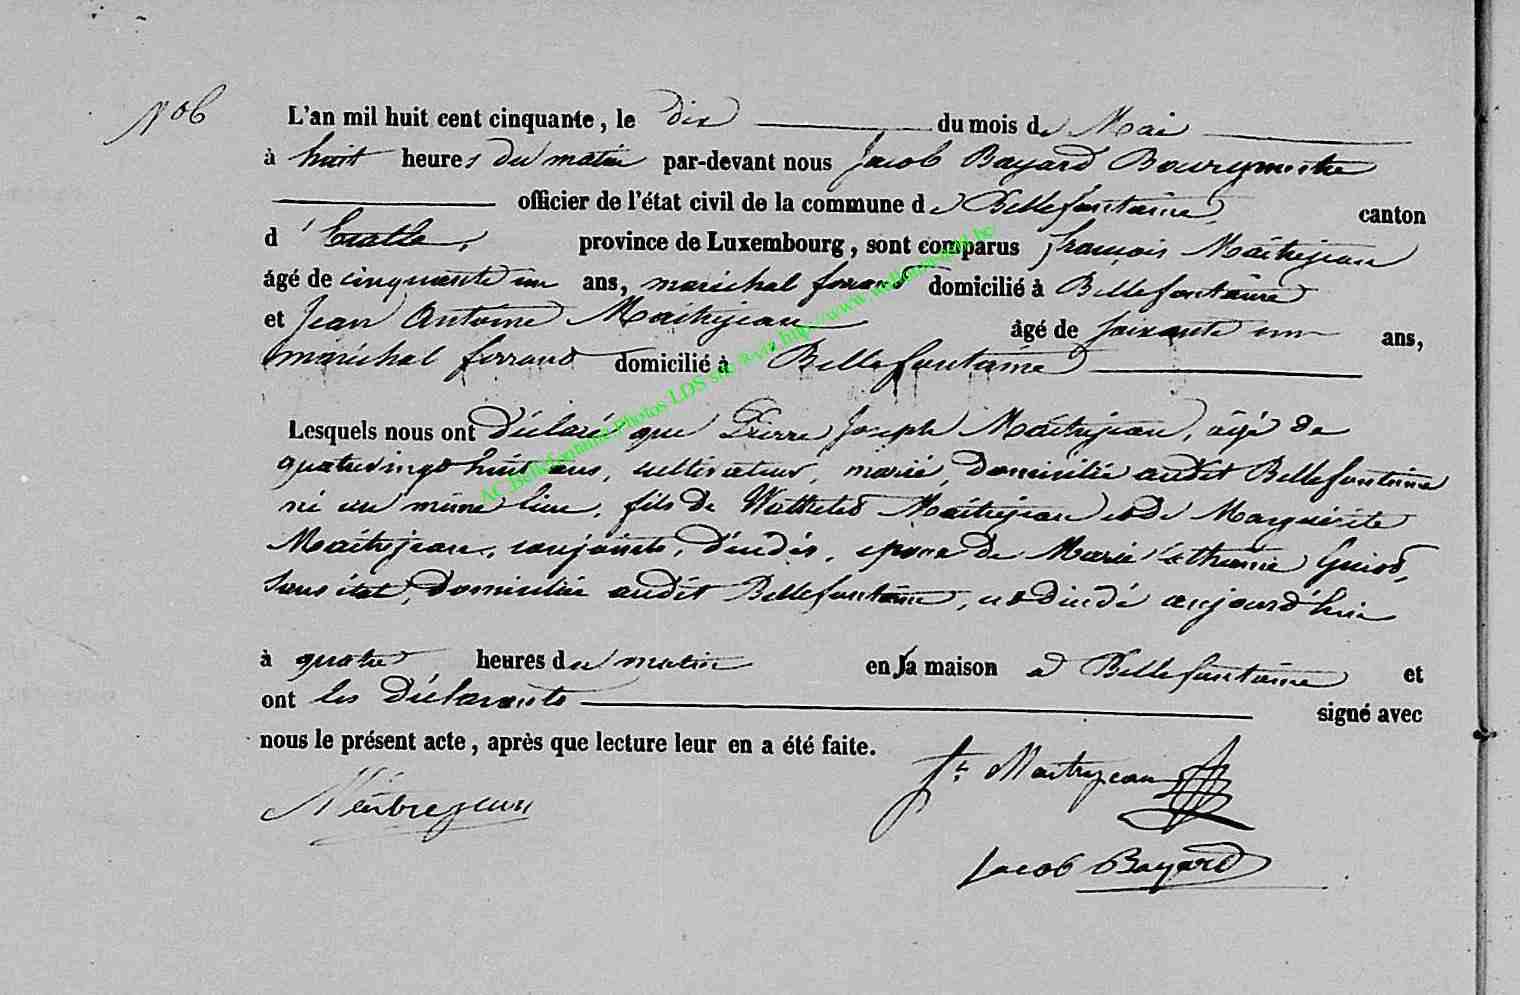 N° 6
L'an mil huit cent cinquante, le dix du mois de Mai
à huit heures du matin par-devant nous Jacob Bayard Bourgmestre
officier de l'état civil de la commune de Bellefontaine canton
d'Etalle, province de Luxembourg, sont comparus François Maitrejean
âgé de cinquante un ans, maréchal ferrand domicilié à Bellefontaine
et Jean Antoine Maitrejean âgé de soixante un ans,
maréchal ferrand domicilié à Bellefontaine
Lesquels nous ont déclaré que Pierre Joseph Maitrejean, âgé de
quatrevingt huit ans, cultivateur, marié, domicilié audit Bellefontaine
né au même lieu, fils de Maitrejean et de Marguerite
Maitrejean, conjoints, décédés, epoux de Marie Catherine Guiot,
sans état, domiciliée audit Bellefontaine, est décédé aujourd'hui
à quatre heures du matin en sa maison à Bellefontaine et
ont les déclarants signé avec
nous le présent acte, après que lecture leur en a été faite.
Maitrejean
Maitrejean
Jacob Bayard
AC Bellefontaine Photos LDS